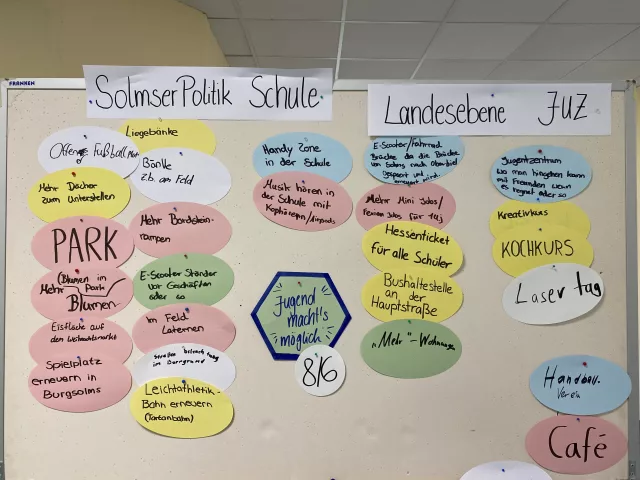 FRANKEN
SolmserPolitik Schule
Landesebene JUZ
Liegebänke
Offenes Fußball
Bänke
z.b. am Feld
Mehr Dächer
zum Unterstellen
PARK
Mehr Bordstein-
rampen
(Blumen im
Park)
Mehr
Blumen
E-Scooter Ständer
vor Geschäften
oder so
Eisfläche auf
den Weihnachtsmarkt
im Feld
Laternen
Spielplatz
erneuern in
Burgsolms
Straßen
im
Leichtathletik-
Bahn erneuern
(Tartanbahn)
Handy Zone
in der Schule
Musik hören in
der Schule mit
Kopfhörern/Airpods
Jugend
macht's
möglich
8/6
E-Scooter/Fahrrad
Brücke da die Brücke
von Solms nach Oberbiel
gesperrt und
erneuert wird.
Mehr Mini Jobs/
Ferien Jobs für 14j
Hessenticket
für alle Schüler
Bushaltestelle
an der
Hauptstraße
"Mehr"-Wohnung
Jugentzentrum
wo man hingehen kann
mit Freunden wenn
es regnet oder so
Kreativkurs
KOCHKURS
Laser tag
Handball
Verein
Café